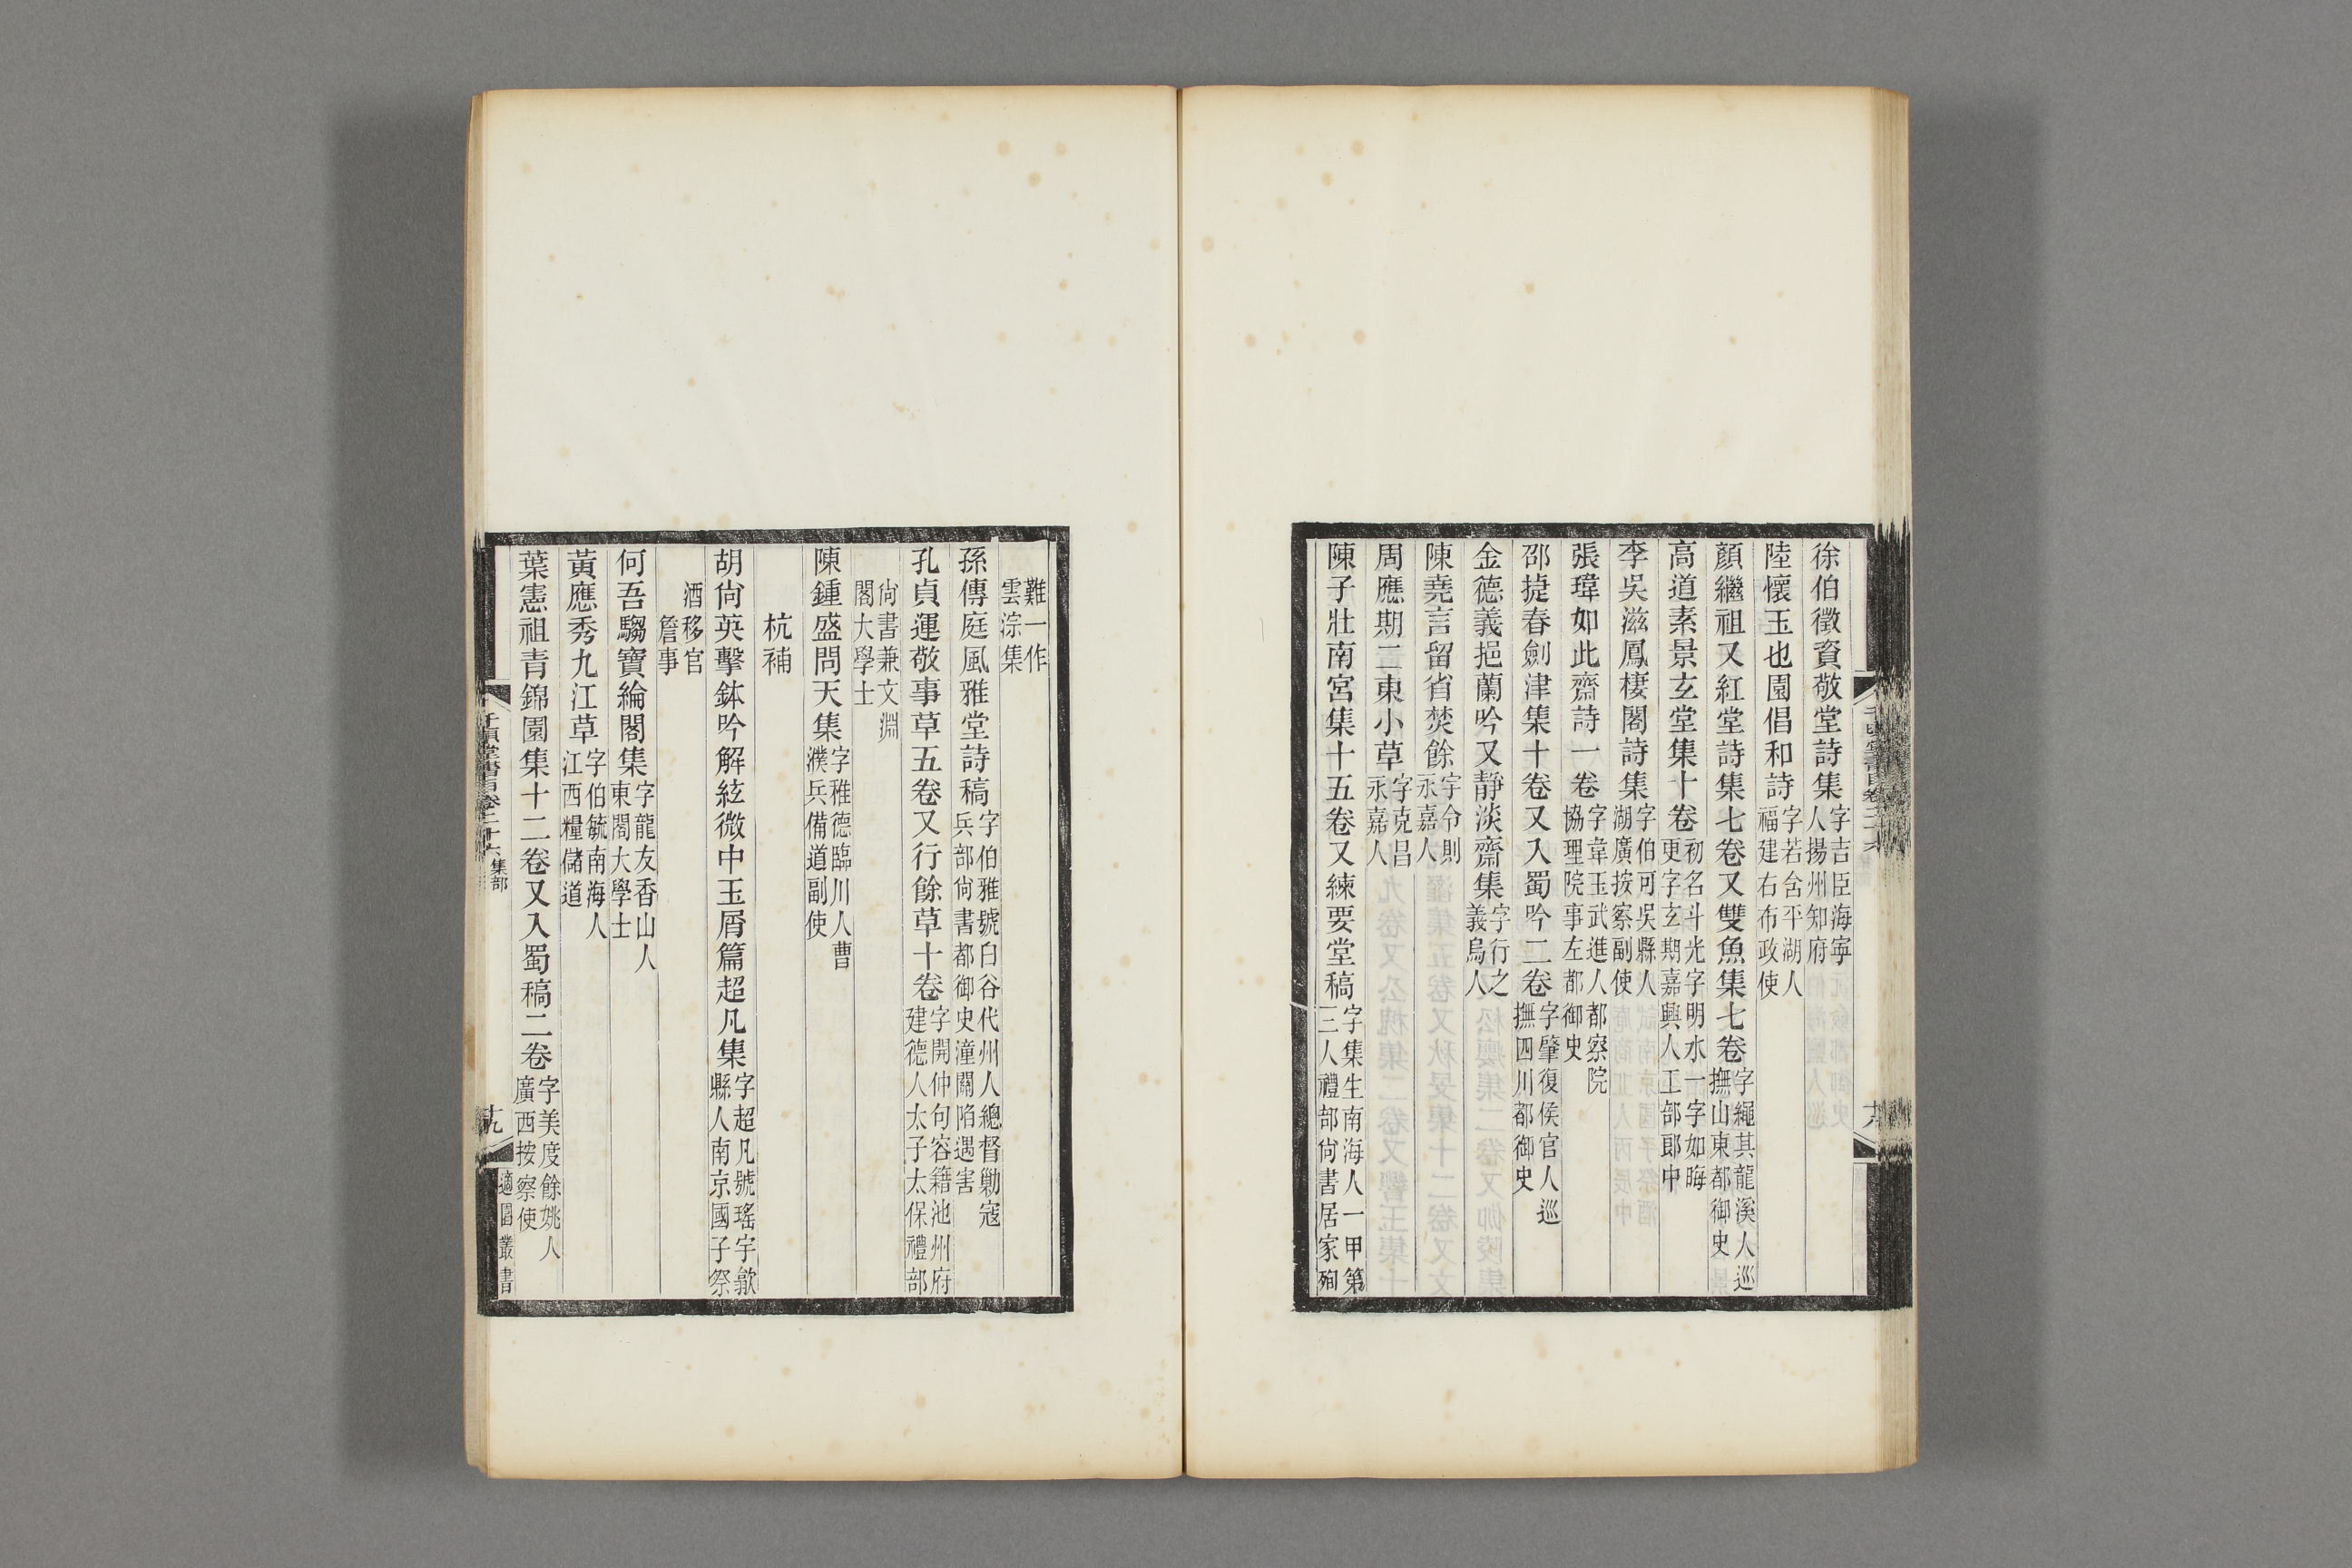 徐伯徵資敬堂詩集字吉臣海寧人揚州知府
陸懷玉也園倡和詩字若舍平湖人福建右布政使
顏繼祖又紅堂詩集七卷又雙魚集七卷字繩其龍溪人巡撫山東都御史
高道素景玄堂集十卷初名斗光字明水一字如晦更字玄期嘉興人工部郎中
李吳滋鳳棲閣詩集字伯可吳縣人湖廣按察副使
張瑋如此齋詩一卷字韋玉武進人都察院協理院事左都御史
邵捷春劍津集十卷又入蜀吟二卷字肇復侯官人巡撫四川都御史
金德義挹蘭吟又靜淡齋集字行之義烏人
陳堯言留省焚餘字令則永嘉人
周應期二東小草字克昌永嘉人
陳子壯南宮集十五卷又練要堂稿字集生南海人一甲第三人禮部尙書居家殉
難一作雲淙集
孫傳庭風雅堂詩稿字伯雅號白谷代州人總督勦寇兵部尙書都御史潼關陷遇害
孔貞運敬事草五卷又行餘草十卷字開仲句容籍池州府建德人太子太保禮部
尙書兼文淵閣大學士
陳鍾盛問天集字稚德臨川人曹濮兵備道副使
杭補
胡尙英擊鉢吟解紘微中玉屑篇超凡集字超凡號瑤宇歙縣人南京國子祭
酒移官詹事
何吾騶寶綸閣集字龍友香山人東閣大學士
黃應秀九江草字伯毓南海人江西糧儲道
葉憲祖青錦園集十二卷又入蜀稿二卷字美度餘姚人廣西按察使
千頃堂書目卷二十六
集部
十九
適園叢書